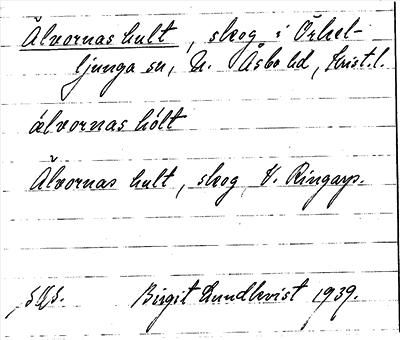 Älvornas hult, skog i Örkel-
ljunga sn, N. Åsbo hd, Krist. l.
älvornas hólt
Älvornas hult, skog, V. Ringarp.
Birgit Lundkvist 1939.